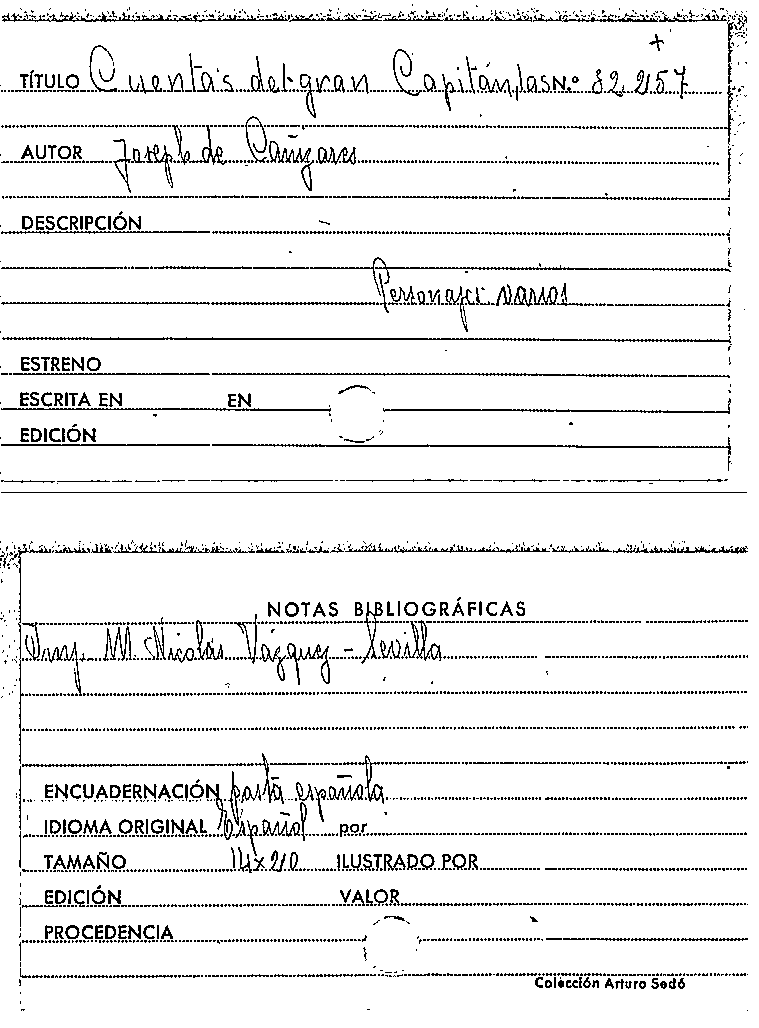 +
TÍTULO Cuentas del gran Capitán, las N.º 82.257
AUTOR Joseph de Cañizares
DESCRIPCIÓN -
Personajes varios
ESTRENO
ESCRITA EN EN
EDICIÓN
NOTAS BIBLIOGRÁFICAS
Imp. M. Nicolás Vázquez - Sevilla
ENCUADERNACIÓN pasta española
IDIOMA ORIGINAL Español por
TAMAÑO 14x20 ILUSTRADO POR
EDICIÓN VALOR
PROCEDENCIA
Colección Arturo Sedó